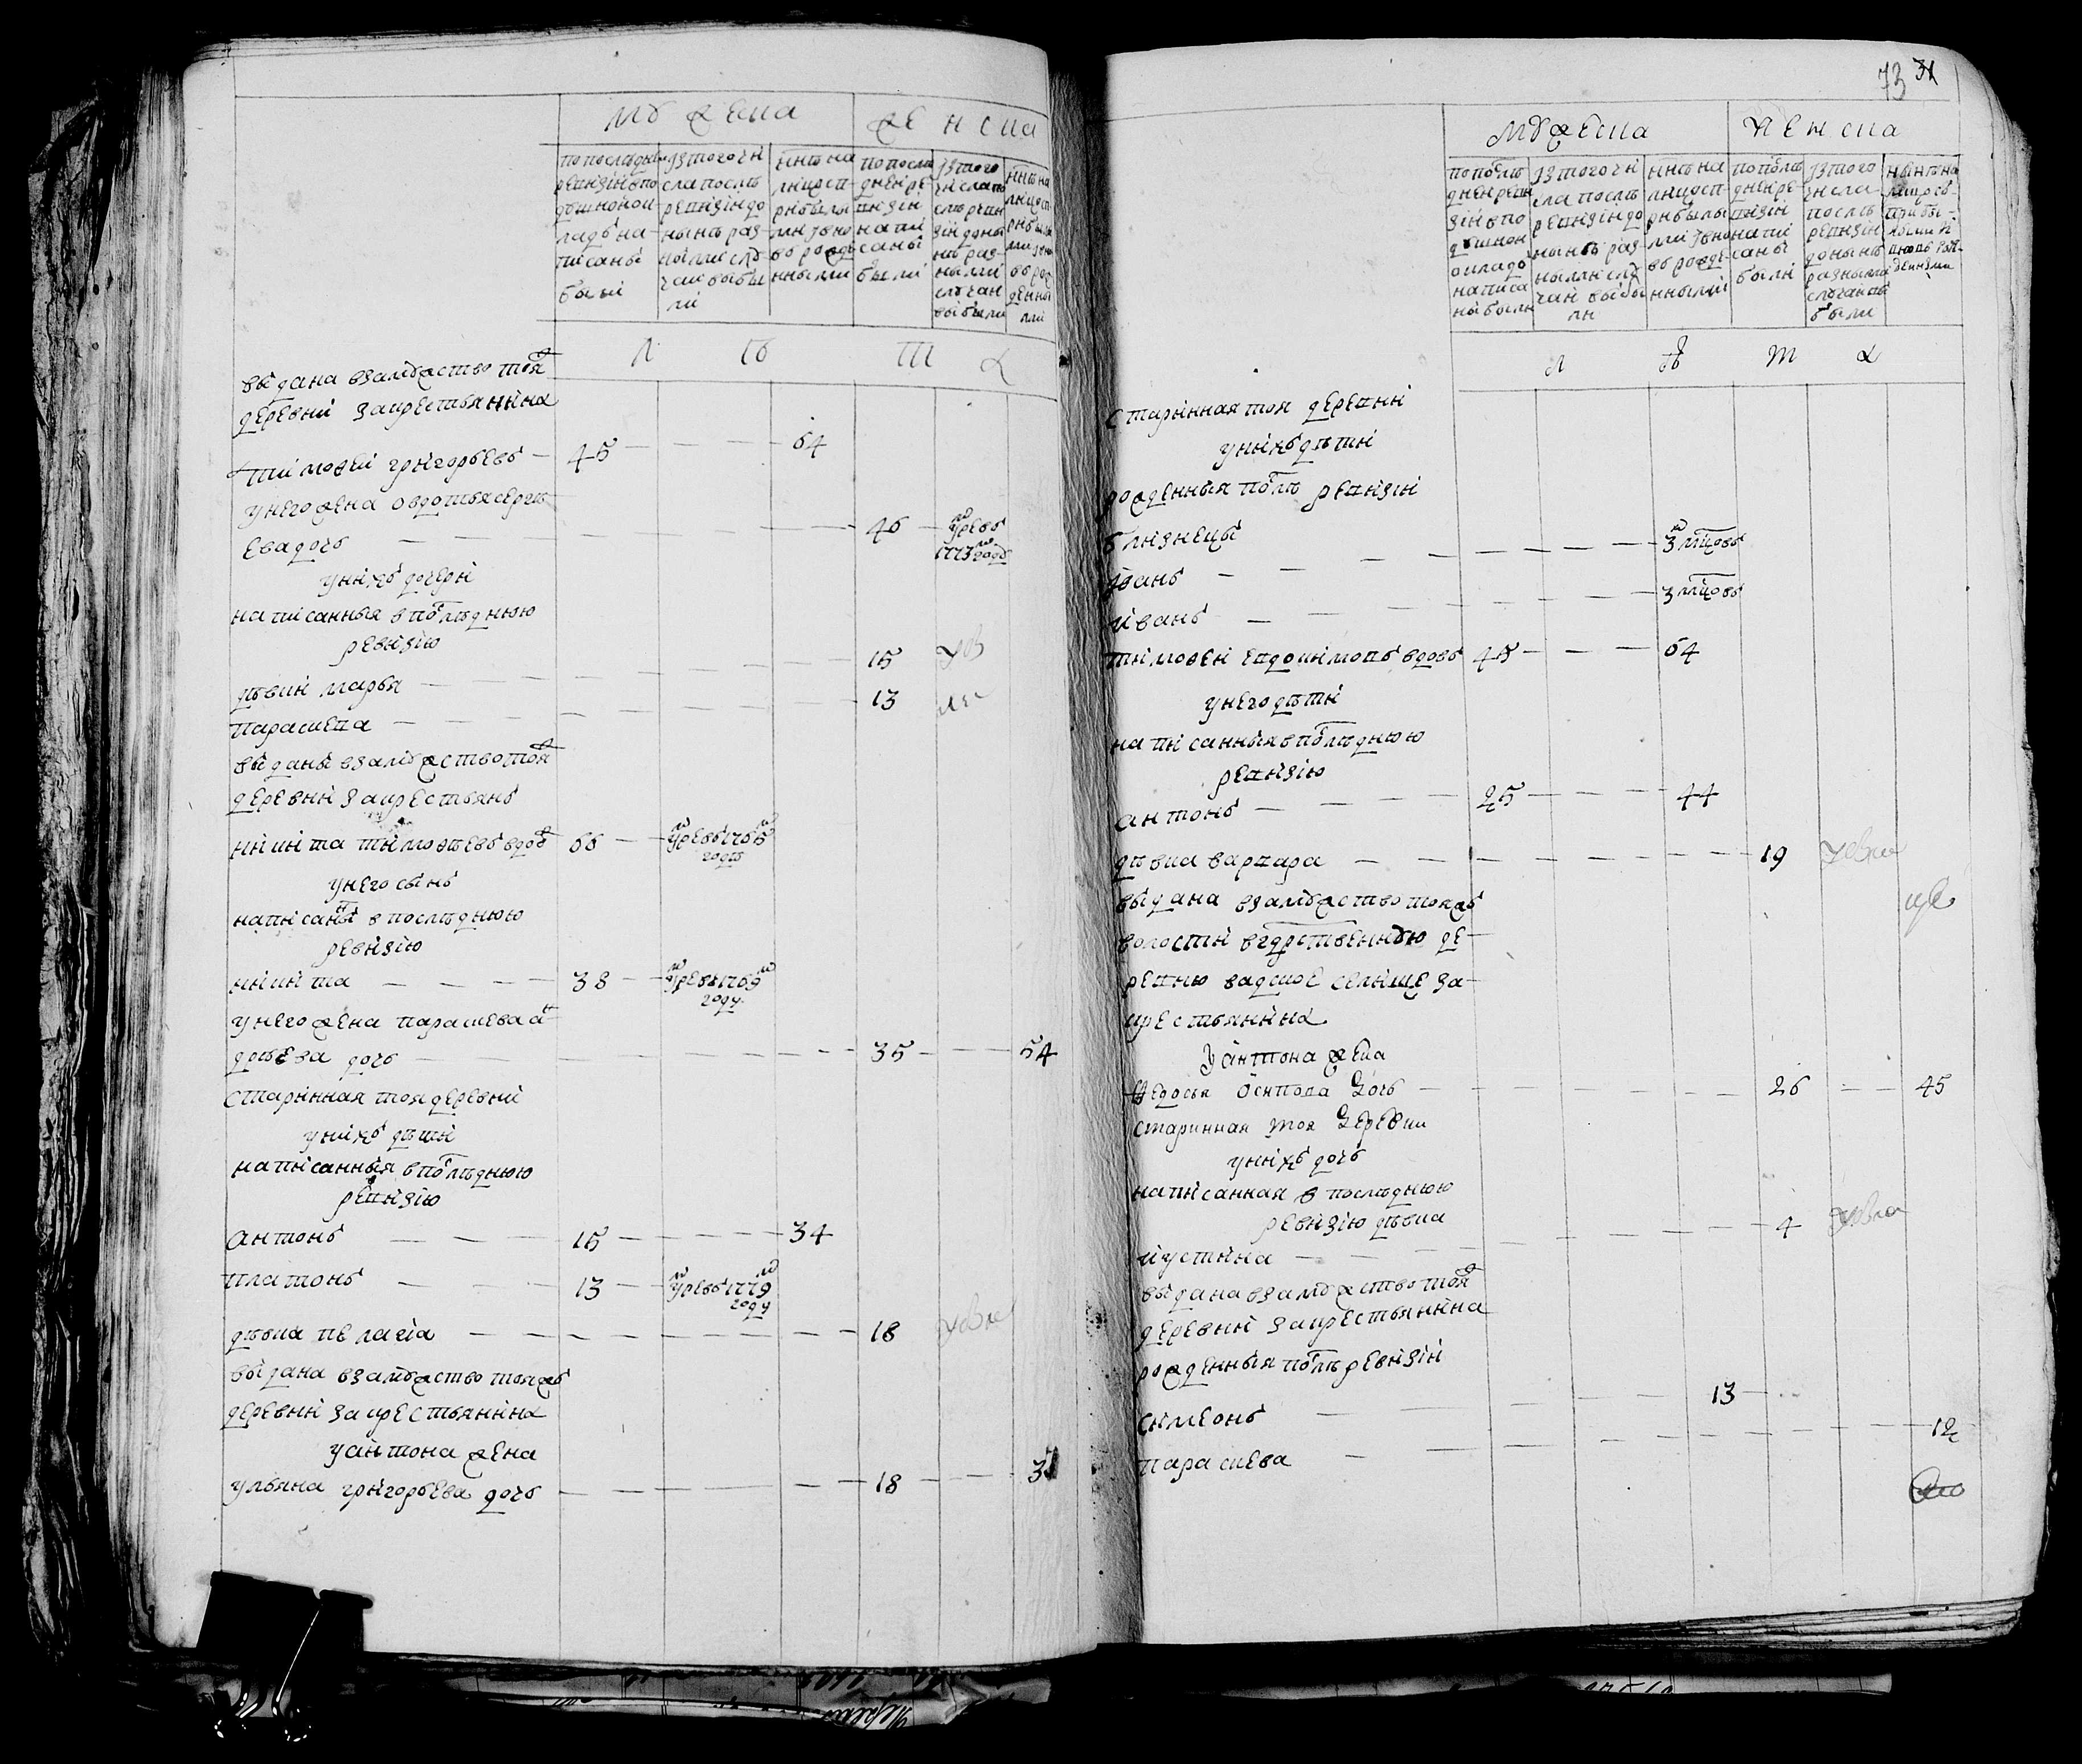 мужеска
женска
по последней
ревизии в по
душной ок
ладъ на
писаны
были
изтого чи
сла послѣ
ревизии до
нынѣ раз
ными слу
чаи выбы
ли
нынѣ на
лицо сп
рибылы
ми и вно
вь рожде
нными
по послѣ
дней ре
визии
напи
саны
были
изтого
числа по
слѣ реви
зии доны
нѣ раз
ными
случаи
выбыли
нынѣ на
лицо сп
рибылы
ми и вно
вь рож
денны
ми
л ѣ т а
выдана взамужество тояж
деревни закрестьянина
тимофей григорьевъ 45 64
унего жена овдотья сергѣ
ева дочь 46 умре въ
1773 году
унихъ дочери
написанныя в послѣднюю
ревизию
дѣвки марья 15
парасковья 13
выданы взамужество тояж
деревни закрестьянъ
никита тимофѣевъ вдовъ 66 умре въ 1765
годѣ
унего сынъ
написаный в послѣднюю
ревизию
никита 38 умре въ 1769
году
унего жена парасковья ан
дрѣева дочь 35 54
старинная тоя деревни
унихъ дѣти
написанныя в послѣднюю
ревизию
антонъ 15 34
платонъ 13 умре въ 1779
году
дѣвка пелагия 18
выдана взамужество тояжъ
деревни закрестьянина
уантона жена
ульяна григорьева дочь 18 37
73 31
мужеска
женска
по послѣ
дней реви
зии в по
душной
окладъ
написа
ны были
изтого чи
сла послѣ
ревизии до
нынѣ раз
ными слу
чаи выбы
ли
нынѣ на
лицо сп
рибылы
ми и вно
вь рожде
нными
по послѣ
дней ре
визии
напи
саны
были
изтого
числа
послѣ
ревизии
донынѣ
разными
случаи вы
были
нынѣ на
лицо съ
прибы
лыми и
вновь рож
денными
л ѣ т а
старинная тоя деревни
унихъ дѣти
рожденныя послѣ ревизии
близнецы
иванъ 3 мцовъ
иванъ 3 мцовъ
тимофей евдокимовъ вдовъ 45 64
унего дѣти
написанныя в послѣднюю
ревизию
антонъ 25 44
дѣвка варвара 19
выдана взамужество тояжъ
волости вгдрственную де
ревню вадское селище за
крестьянина
уантона жена
Федосья Осипова дочь 26 45
старинная тоя деревни
унихъ дочь
написанная в послѣднюю
ревизию дѣвка
иустина 4
выдана взамужество тояж
деревни закрестьянина
рожденныя послѣ ревизии
симеонъ 13
парасковья 12